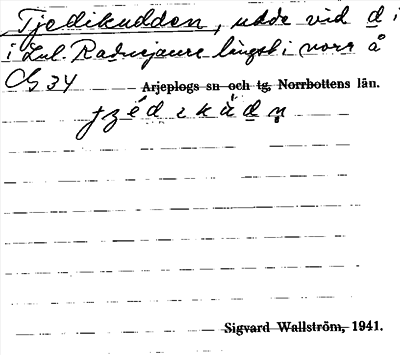 Tjedikudden, udde vid d i
i Lul. Radnejaure längst i norr å
CG 34 Arjeplogs sn och tg, Norrbottens län.
Sigvard Wallström, 1941.